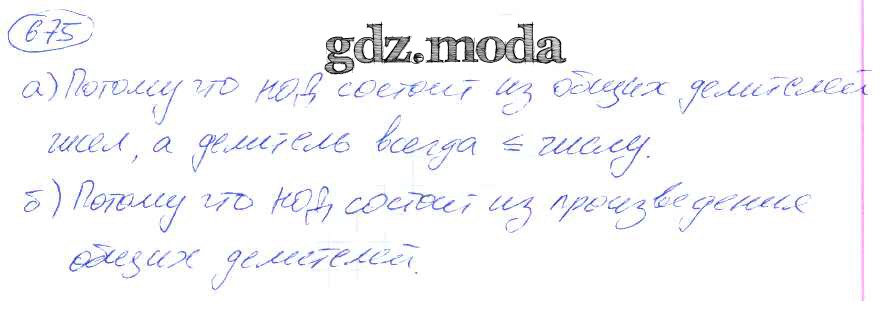 675
gdz.moda
а) Потому что НОД состоит из общих делителей
чисел, а делитель всегда ≤ числу.
б) Потому что НОД состоит из произведения
общих делителей.